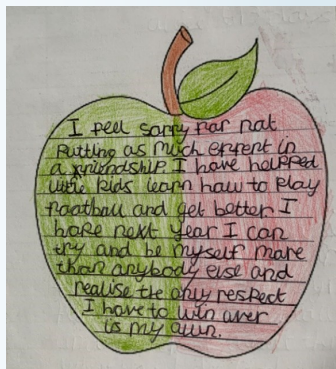 I feel sorry for not
putting as much effrent in
a friendship. I have helpped
little kids learn how to play
football and get better I
hope next year I can
try and be myself more
than anybody else and
realise the only respect
I have to win over
is my own.